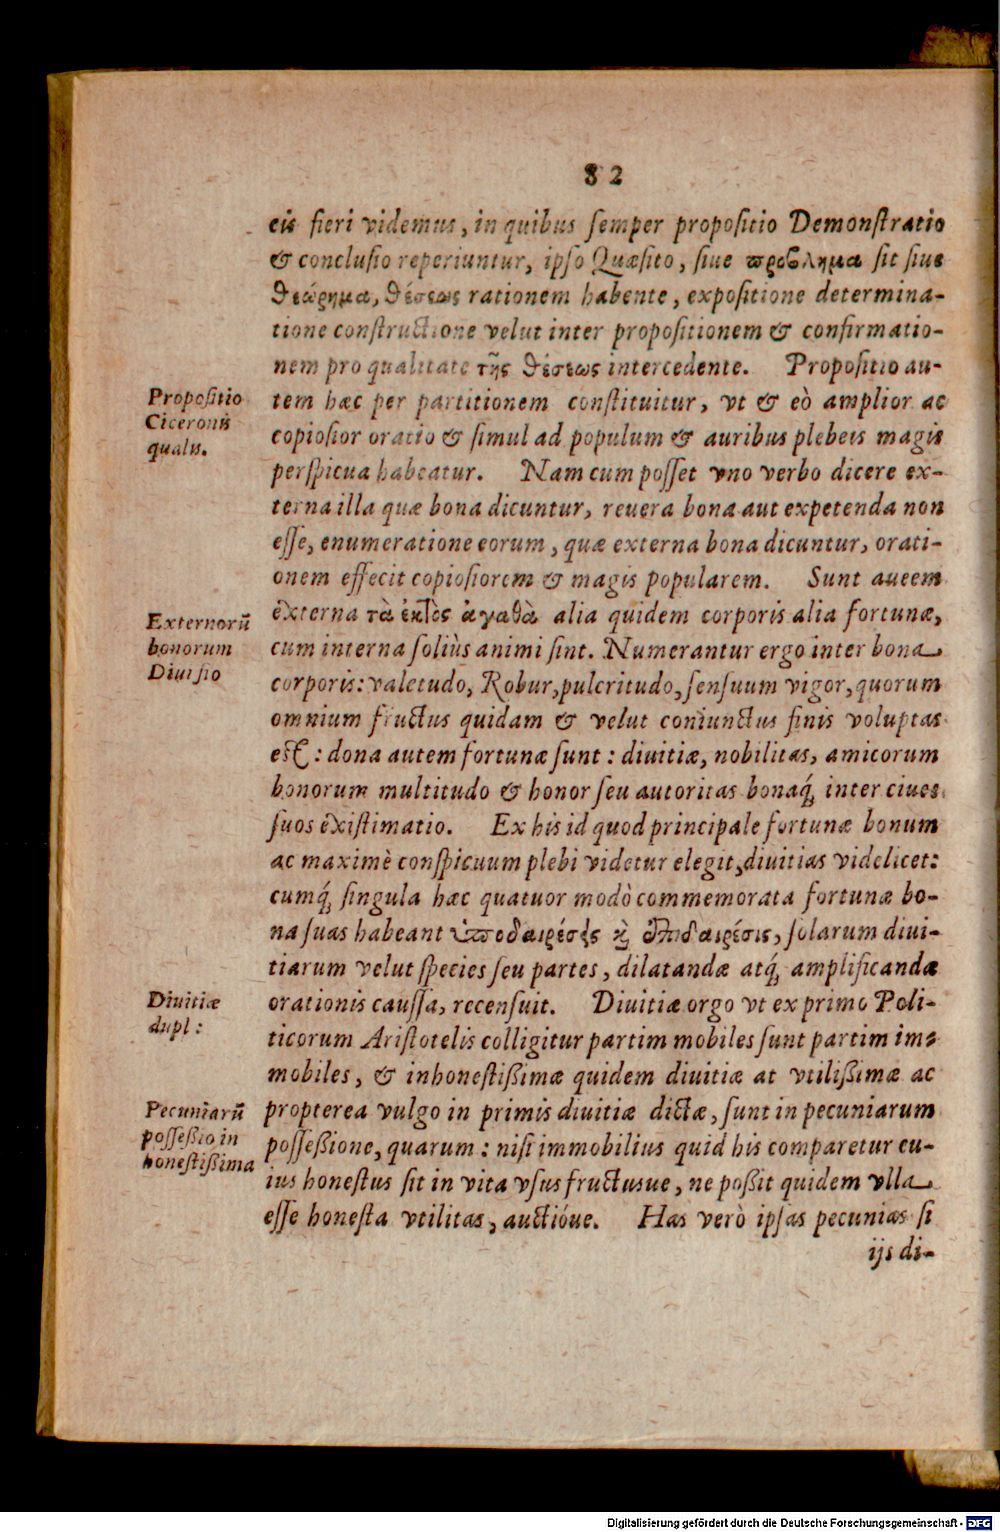 82
eis fieri videmus, in quibus ſemper propoſitio Demonſtratio
& concluſio reperiuntur, ipſo Quæſito, ſiue προβλημα ſit ſiue
θεώρημα, θέσεως rationem habente, expoſitione determina-
tione conſtructione velut inter propoſitionem & confirmatio-
nem pro qualitate τῆς θέσεως intercedente. Propoſitio au-
Propoſitio
Ciceronis
qualis.
tem hæc per partitionem conſtituitur, vt & eò amplior ac
copioſior oratio & ſimul ad populum & auribus plebeis magis
perſpicua habeatur. Nam cum poſſet vno verbo dicere ex-
terna illa quæ bona dicuntur, reuera bona aut expetenda non
eſſe, enumeratione eorum, quæ externa bona dicuntur, orati-
onem effecit copioſiorem & magis popularem. Sunt aueem
Externorū
bonorum
Diuiſio
externa τὰ ἐκτὸς ἀγαθὰ alia quidem corporis alia fortunæ,
cum interna ſoliùs animi ſint. Numerantur ergo inter bona
corporis: valetudo, Robur, pulcritudo, ſenſuum vigor, quorum
omnium fructus quidam & velut coniunctus finis voluptas
eſt: dona autem fortunæ ſunt: diuitiæ, nobilitas, amicorum
bonorum multitudo & honor ſeu autoritas bonaq́; inter ciues
ſuos exiſtimatio. Ex his id quod principale fortunæ bonum
ac maximè conſpicuum plebi videtur elegit, diuitias videlicet:
cumq́; ſingula hæc quatuor modò commemorata fortunæ bo-
na ſuas habeant ὑποδαιρέσεις καὶ ἐπιδαιρέσις, ſolarum diui-
tiarum velut ſpecies ſeu partes, dilatandæ atq́; amplificandæ
Diuitiæ
dupl:
orationis cauſſa, recenſuit. Diuitiæ orgo vt ex primo Poli-
ticorum Ariſtotelis colligitur partim mobiles ſunt partim im-
mobiles, & inhoneſtißimæ quidem diuitiæ at vtilißimæ ac
Pecuniarū
poſſeßio in
honeſtißima
propterea vulgo in primis diuitiæ dictæ, ſunt in pecuniarum
poſſeßione, quarum: niſi immobilius quid his comparetur cu-
ius honeſtus ſit in vita vſus fructusue, ne poßit quidem vlla
eſſe honeſta vtilitas, auctióue. Has verò ipſas pecunias ſi
ijs di-
Digitalisierung gefördert durch die Deutsche Forschungsgemeinschaft - DFG